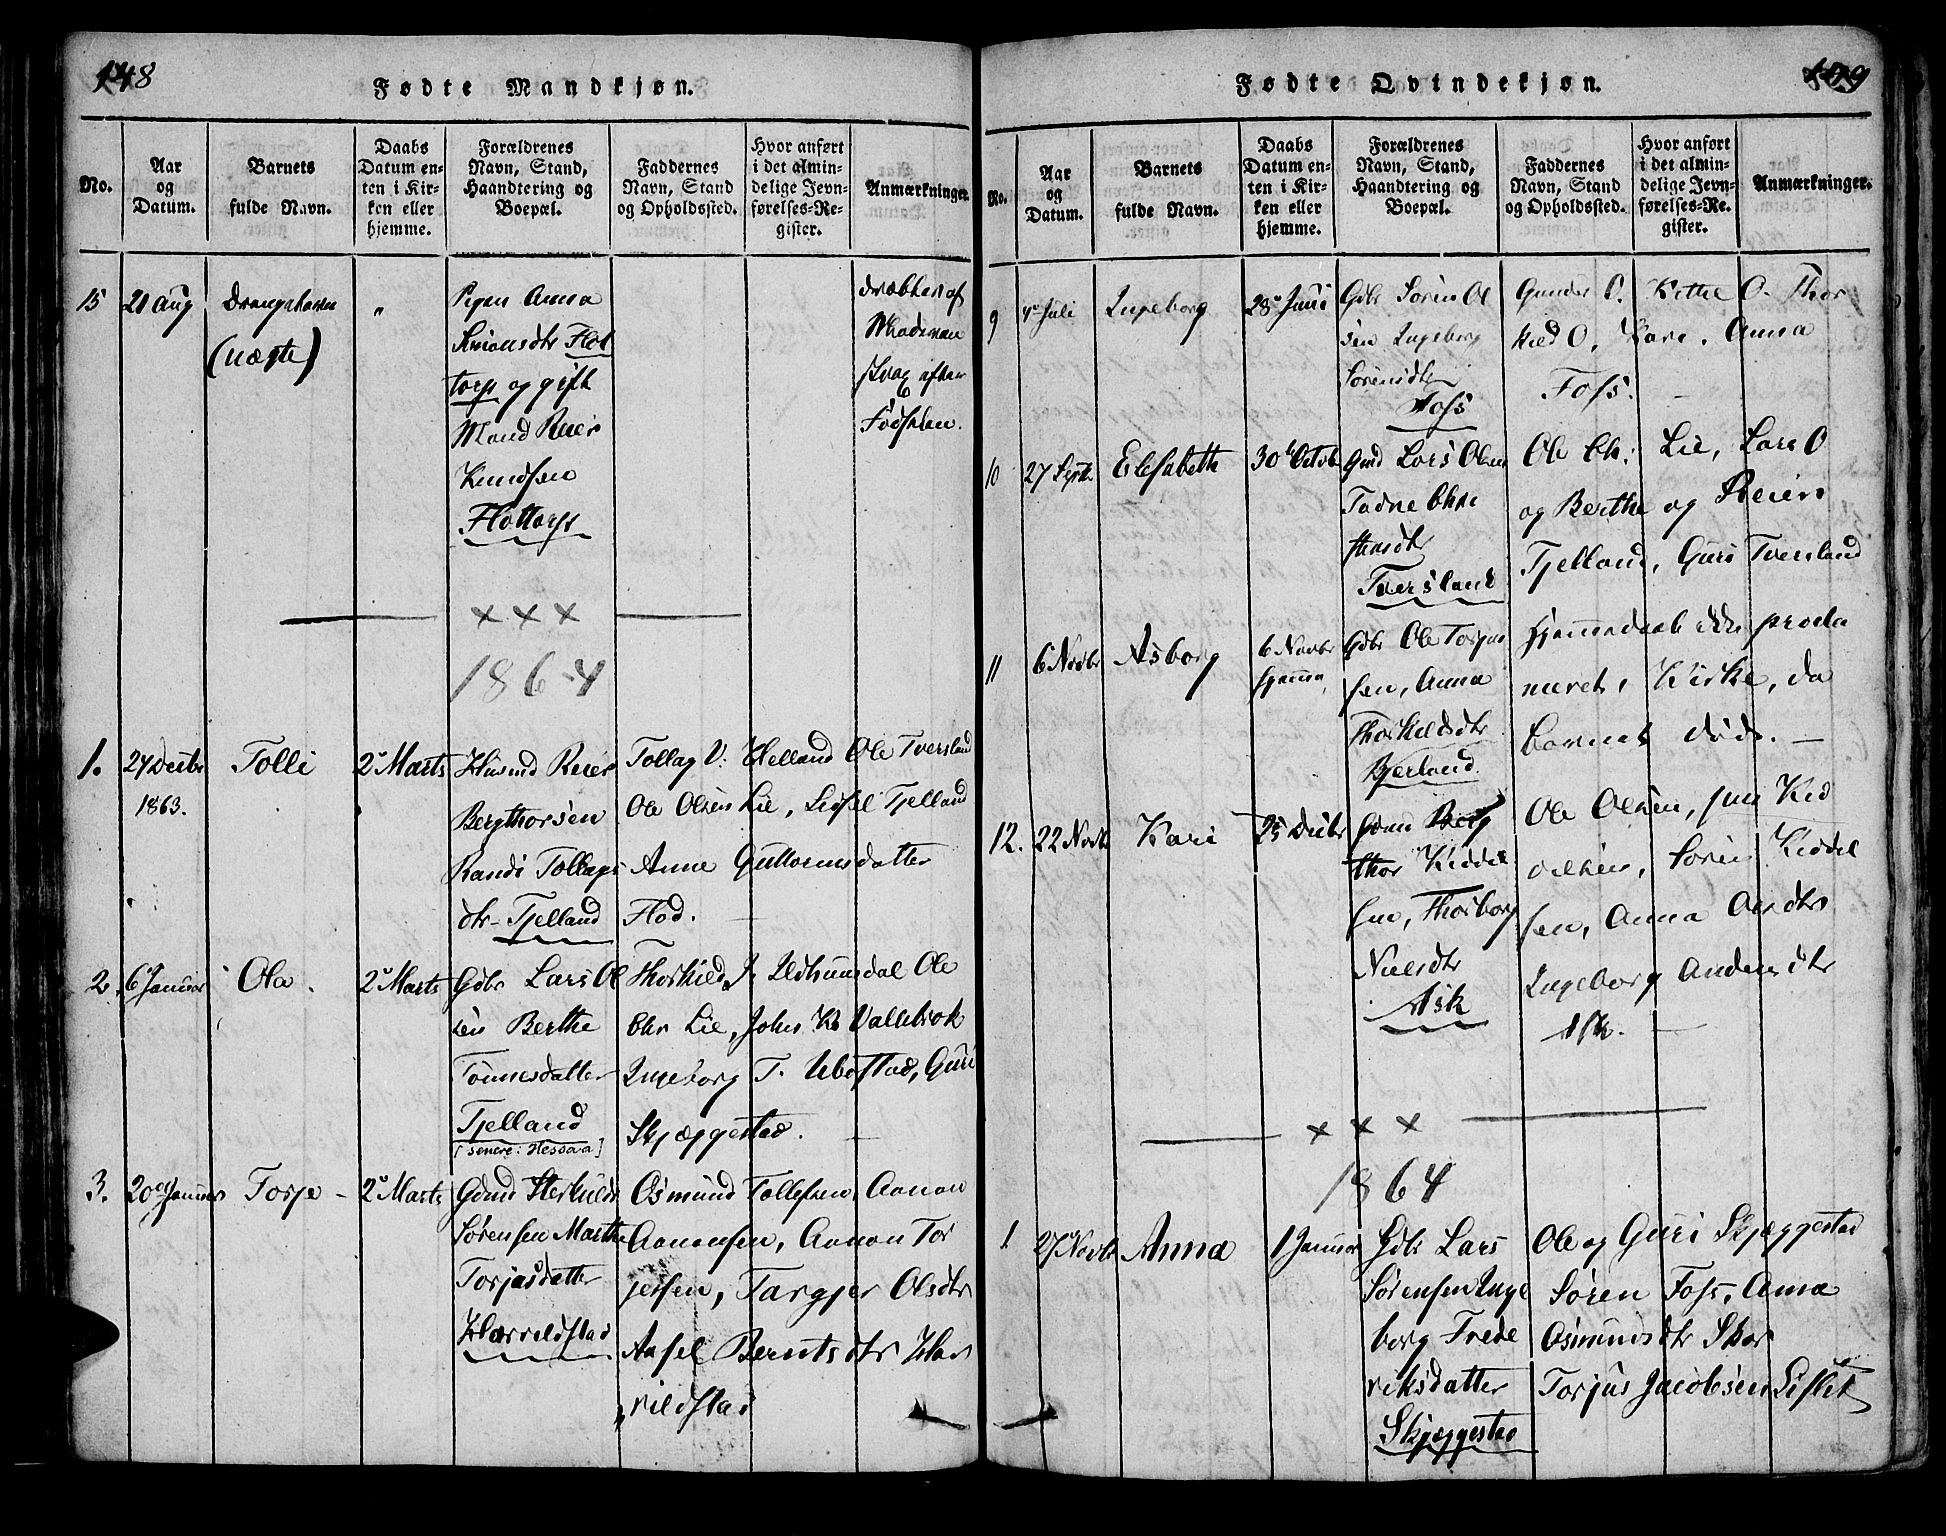 148
Fødte Mandkjøn.
No.
Aar
og
Datum.
Barnets
fulde Navn.
Daabs
Datum en-
ten i Kir-
ken eller
hjemme.
Forældrenes
Navn, Stand,
Haandtering og
Boepæl.
Faddernes
Navn, Stand
og Opholdssted.
Hvor anført
i det almin-
delige Jevn-
førelses-Re-
gister.
Anmærkninger.
15
21 Aug
Drengebarn
(uægte)
"
Pigen Anna
Simonsdtr Flot
torp og gift
Mand Reier
Knudsen
Flottorp
dræbt af
Moderen
strax efter
Fødselen.
× × ×
1864
1.
27 Decbr
1863.
Tolli
2 Marts
Husmd Reier
Bergthorsen
Randi Tollags
dtr Tjelland
Tollag V. Helland Ole Tversland
Ole Olsen Lie, Sidsel Tjelland
Anne Guttormsdatter
Flod.
2.
6 Januar
Ola.
2 Marts
Gdbr Lars Ol
sen Berthe
Tønnesdatter
Tjelland
[senere: Hessaa]
Thorkild J. Udhunsdal Ole
Chr Lie, John K Vallebrok
Ingeborg T. Ubostad, Guri
Skjæggestad.
3.
20 Januar
Torje
2 Marts
Gdmd Sterkuld
Sørensen Marthe
Torjusdatter
Harveldstad
Osmund Tollefsen, Aanon
Aanonsen, Aanon Tor
jesen, Targjer Olsdtr
Aasel Berntsdtr Har
vildstad
149
Fødte Qvindekjøn.
No.
Aar
og
Datum.
Barnets
fulde Navn.
Daabs
Datum en-
ten i Kir-
ken eller
hjemme.
Forældrenes
Navn, Stand,
Haandtering og
Boepæl.
Faddernes
Navn, Stand
og Opholdssted.
Hvor anført
i det almin-
delige Jevn-
førelses-Re-
gister.
Anmærkninger.
9
4 Juli
Ingeborg
28 Juni
Gdbr Søren Ol
sen Ingeborg
Sørensdtr
Foss
Gunder O. Kithel O. Thor
kild O, Kari, Anna
Foss.
10
27 Septb.
Elisabeth
30 Octob
Gmd Lars Olsen
Tadne Chri
stensdtr
Tversland
Ole Chr. Lie, Lars O
og Berthe og Reier
Tjelland, Guri Tversland
11
6 Novbr
Asborg
6 Novbr
hjemme
Gdbr Ole Torjus
sen, Anna
Thorkildsdtr
Bjerland
Hjemmedaab ikke procla
meret i Kirke, da
barnet døde.
12.
22 Novbr
Kari
25 Decbr
Gdmd Berg
thor Kiddel
sen, Thorborg
Nielsdtr
Ask
Ole Olsen, Jens Kid
delsen, Søren Kiddel
sen, Anna Arsdtr
Ingeborg Andersdtr
Ask.
× × ×
1864
1.
27 Novbr
Anna
1 Januar
Gdbr Lars
Sørensen Inge
borg Frede
riksdatter
Skjæggestad
Ole og Guri Skjæggestad
Søren Foss, Anna
Osmundsdtr Skor
Torjus Jacobsen Lislet